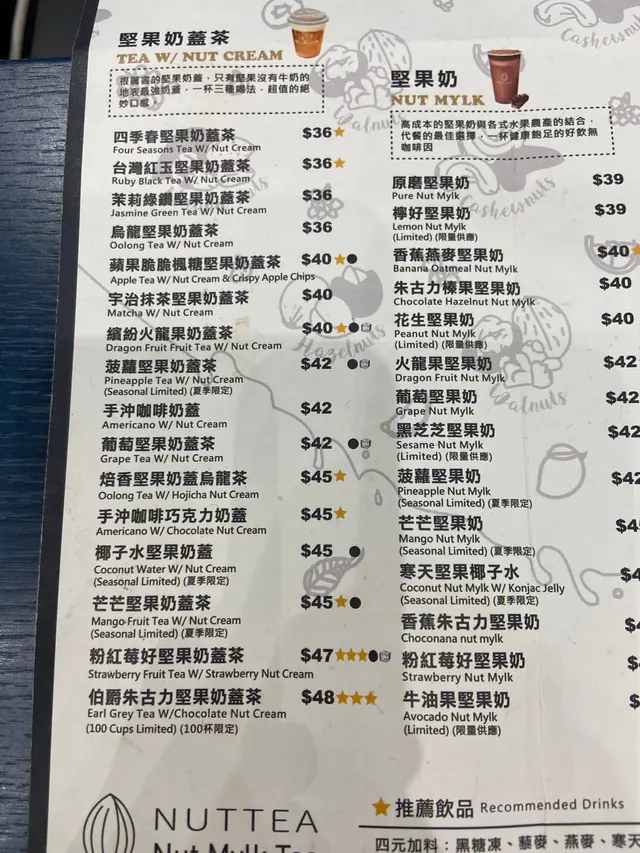 堅果奶蓋茶
TEA W/ NUT CREAM
很厲害的堅果奶蓋，只有堅果沒有牛奶的
地表最強奶蓋，一杯三種喝法，超值的絕
妙口感
四季春堅果奶蓋茶 $36
Four Seasons Tea W/ Nut Cream
台灣紅玉堅果奶蓋茶 $36
Ruby Black Tea W/ Nut Cream
茉莉綠鑽堅果奶蓋茶 $36
Jasmine Green Tea W/ Nut Cream
烏龍堅果奶蓋茶 $36
Oolong Tea W/ Nut Cream
蘋果脆脆楓糖堅果奶蓋茶 $40
Apple Tea W/ Nut Cream & Crispy Apple Chips
宇治抹茶堅果奶蓋茶 $40
Matcha W/ Nut Cream
繽紛火龍果奶蓋茶 $40
Dragon Fruit Fruit Tea W/ Nut Cream
菠蘿堅果奶蓋茶 $42
Pineapple Tea W/ Nut Cream
(Seasonal Limited) (夏季限定)
手沖咖啡奶蓋 $42
Americano W/ Nut Cream
葡萄堅果奶蓋茶 $42
Grape Tea W/ Nut Cream
焙香堅果奶蓋烏龍茶 $45
Oolong Tea W/ Hojicha Nut Cream
手沖咖啡巧克力奶蓋 $45
Americano W/ Chocolate Nut Cream
椰子水堅果奶蓋 $45
Coconut Water W/ Nut Cream
(Seasonal Limited) (夏季限定)
芒芒堅果奶蓋茶 $45
Mango Fruit Tea W/ Nut Cream
(Seasonal Limited) (夏季限定)
粉紅莓好堅果奶蓋茶 $47
Strawberry Fruit Tea W/ Strawberry Nut Cream
伯爵朱古力堅果奶蓋茶 $48
Earl Grey Tea W/Chocolate Nut Cream
(100 Cups Limited) (100杯限定)
堅果奶
NUT MYLK
高成本的堅果奶與各式水果農產的結合，
代餐的最佳選擇，一杯健康飽足的好飲無
咖啡因
原磨堅果奶 $39
Pure Nut Mylk
檸好堅果奶 $39
Lemon Nut Mylk
(Limited) (限量供應)
香蕉燕麥堅果奶 $40
Banana Oatmeal Nut Mylk
朱古力榛果堅果奶 $40
Chocolate Hazelnut Nut Mylk
花生堅果奶 $40
Peanut Nut Mylk
(Limited) (限量供應)
火龍果堅果奶 $42
Dragon Fruit Nut Mylk
葡萄堅果奶 $42
Grape Nut Mylk
黑芝芝堅果奶 $42
Sesame Nut Mylk
(Limited) (限量供應)
菠蘿堅果奶 $42
Pineapple Nut Mylk
(Seasonal Limited) (夏季限定)
芒芒堅果奶 $4
Mango Nut Mylk
(Seasonal Limited) (夏季限定)
寒天堅果椰子水 $4
Coconut Nut Mylk W/ Konjac Jelly
(Seasonal Limited) (夏季限定)
香蕉朱古力堅果奶 $4
Choconana nut mylk
粉紅莓好堅果奶 $4
Strawberry Nut Mylk
牛油果堅果奶 $
Avocado Nut Mylk
(Limited) (限量供應)
Cashewnuts
Walnuts
Cashewnuts
Hazelnuts
Walnuts
NUTTEA
Nut Mylk Tea
推薦飲品 Recommended Drinks
四元加料：黑糖凍、藜麥、燕麥、寒天